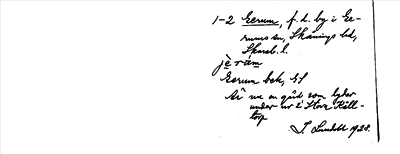 1-2 Eerum, f. d. by i Ee-
rums sn, Skånings hd,
Skarab. l.
jèràm
Eerum bok, GS
Är nu en gård som lyder
under nr 2 Stora Käll-
torp
J. Lundahl 1928.